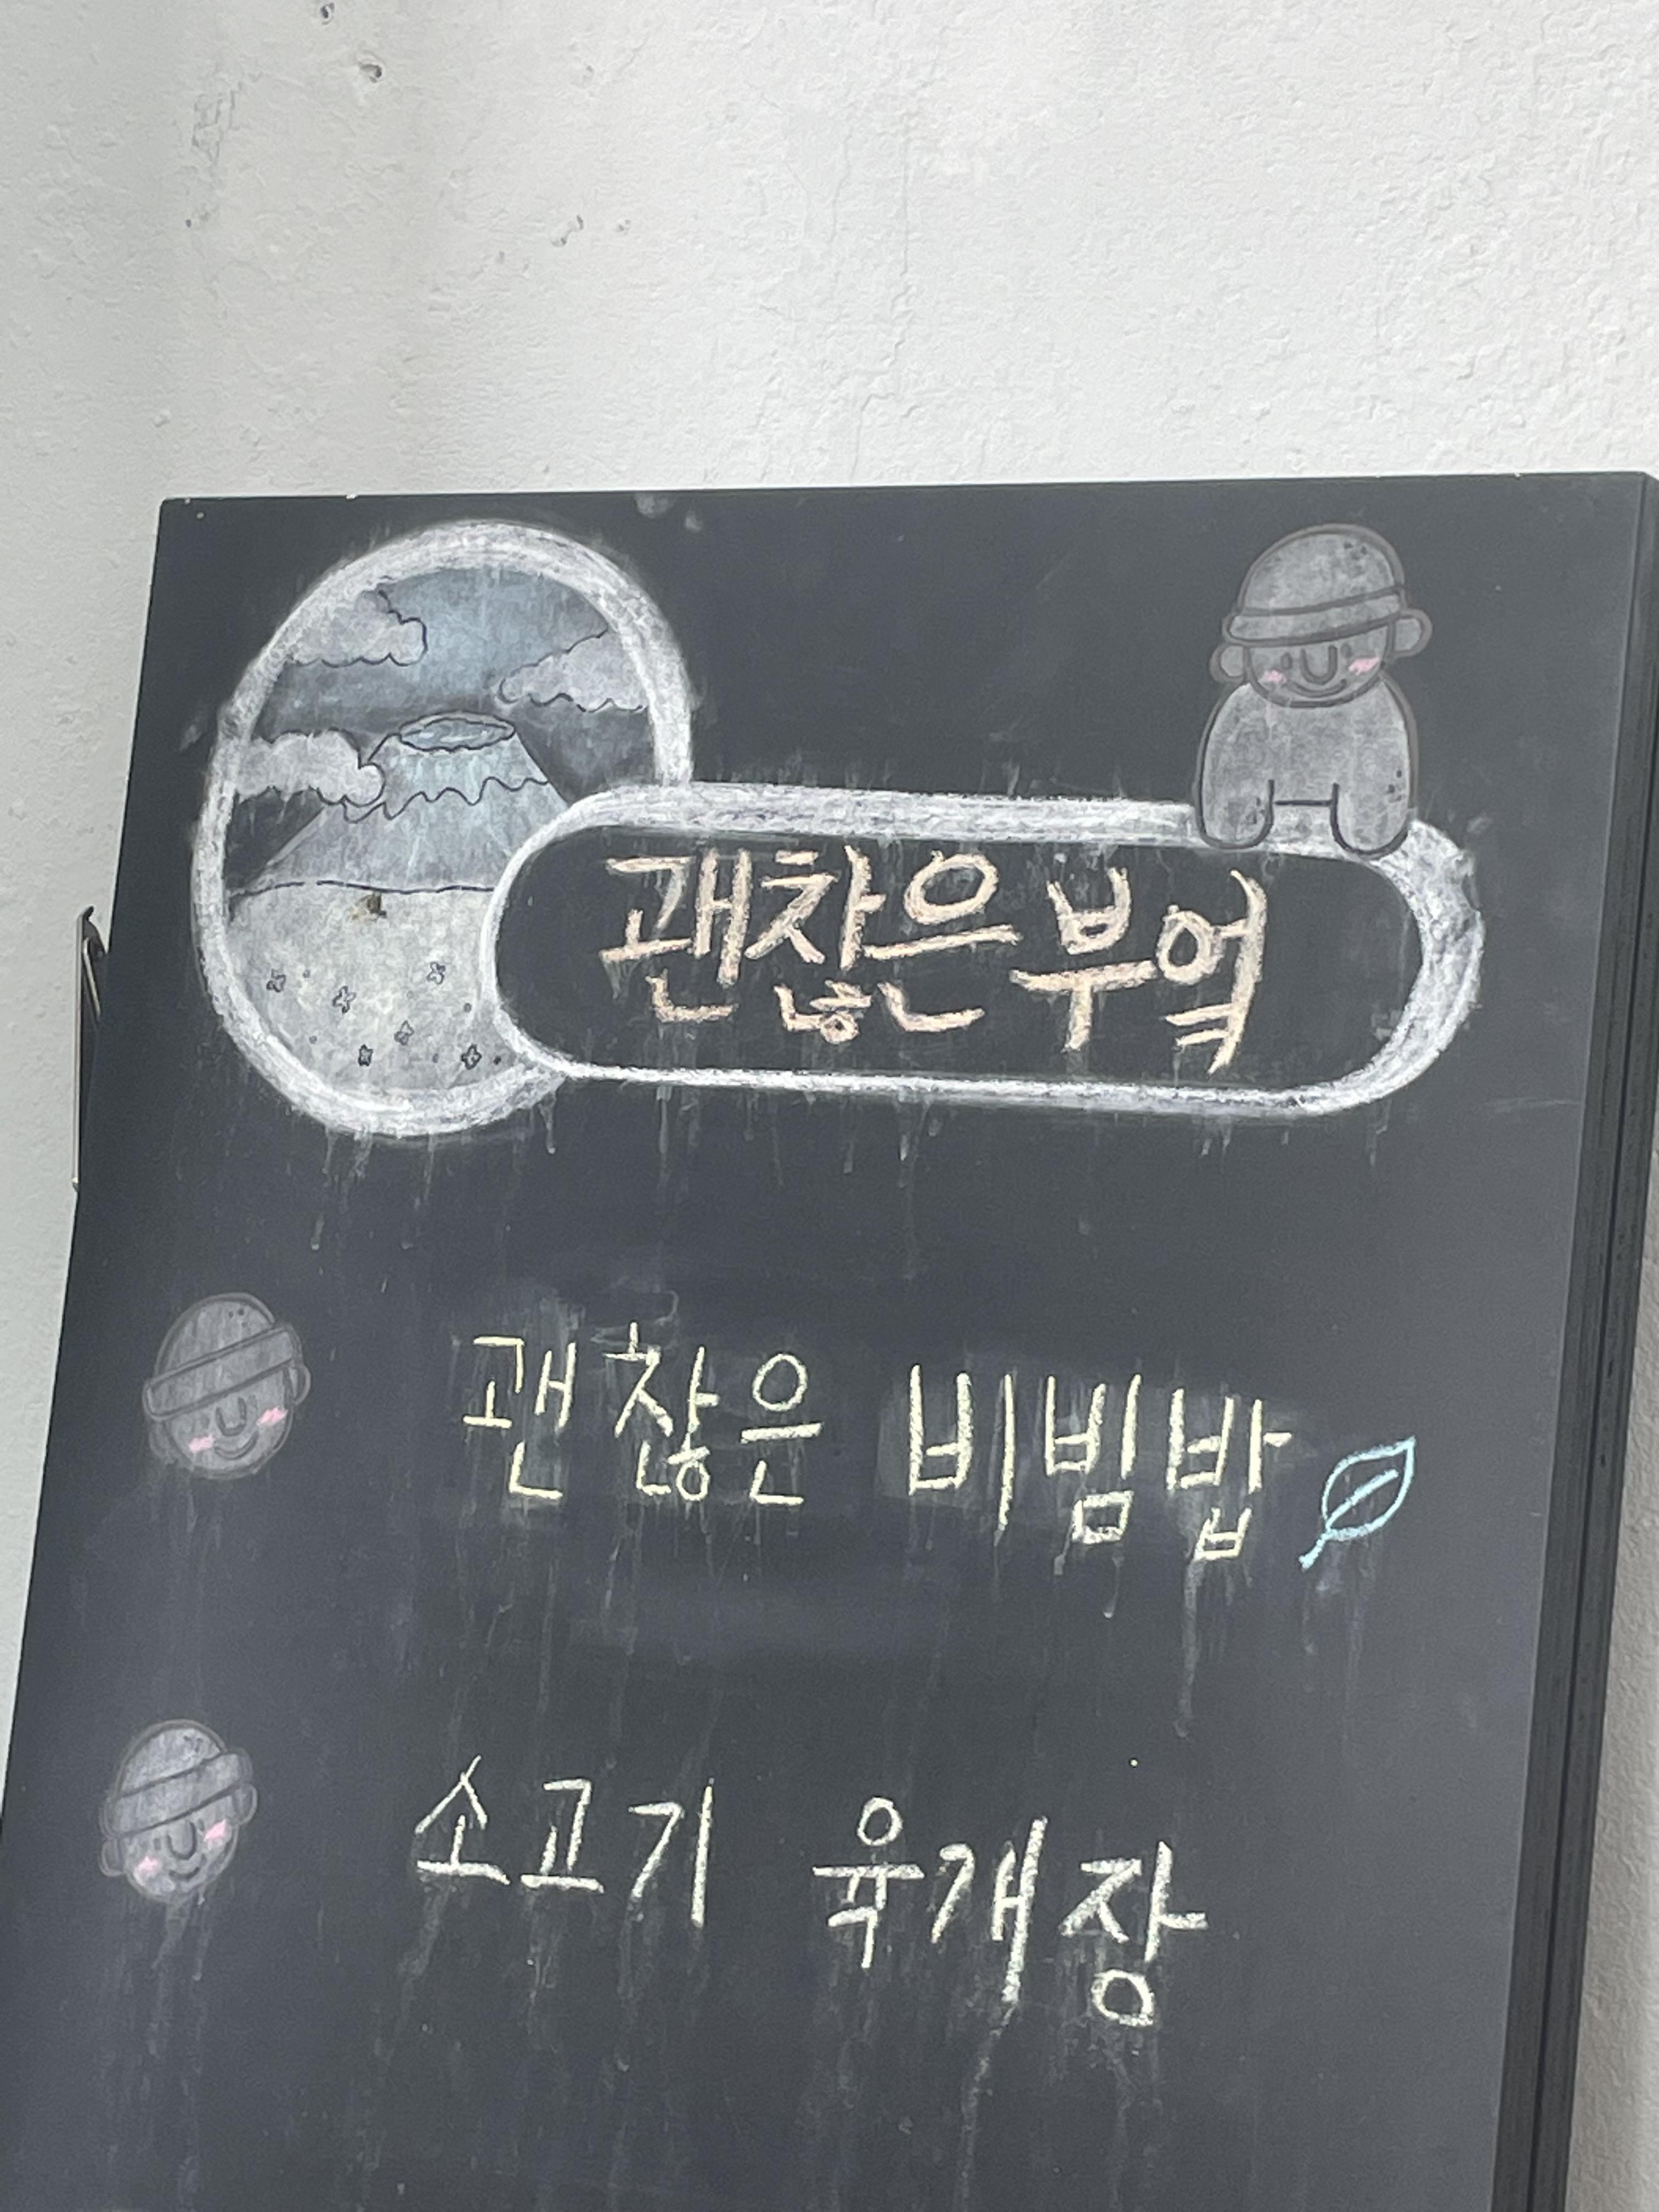 괜찮은 부엌
괜찮은 비빔밥
소고기 육개장